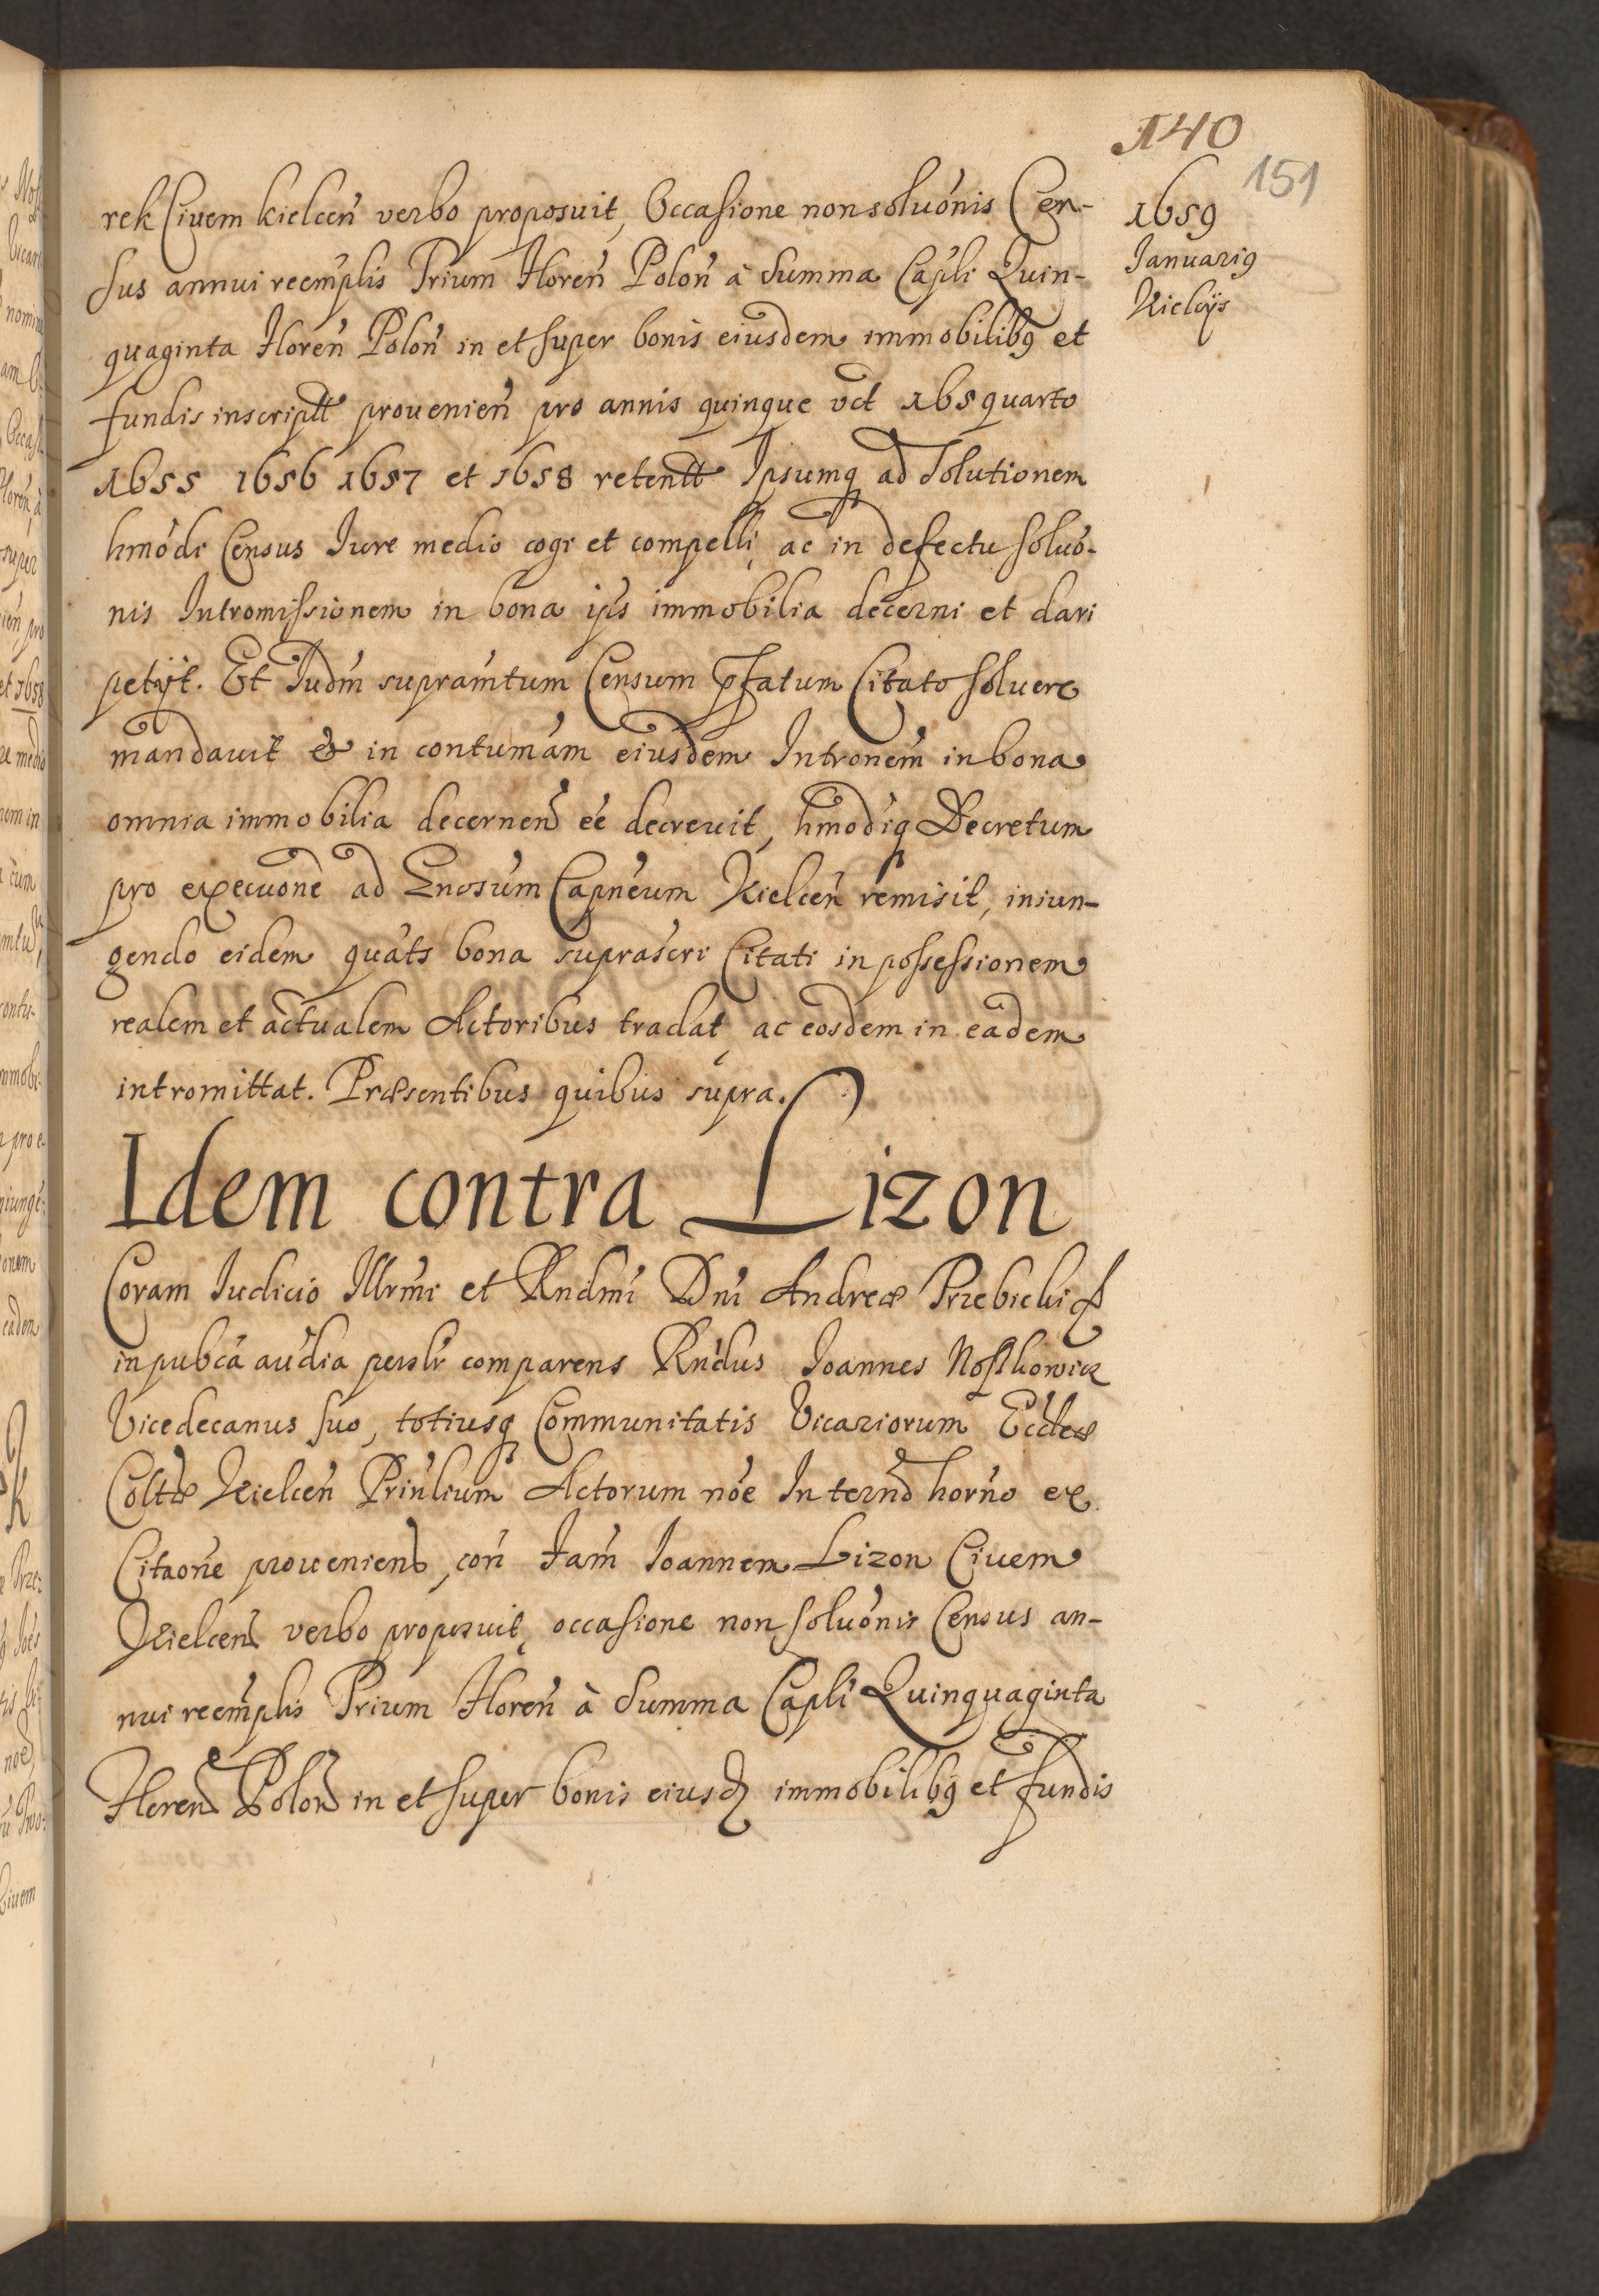 140
151
1659
Januari9
Kielcijs
rek Civem kielcen̄ verbo proposuit, Occasione nonsoluōnis Cen-
sus annui reemp̄lis Trium Floren̄ Polon̄ à Summa Cap̄li Quin-
quaginta Floren̄ Polon̄ in et super bonis eiusdem immobilib9 et
fundis inscriptt prouenien̄ pro annis quinque vct 165quarto
1655 1656 1657 et 1658 retentt Ipsumq ad Solutionem
hmōdi Census Iure medio cogi et compelli, ac in defectu soluō-
nis Intromissionem in bona ip̄s immobilia decerni et dari
petijt. Et Iudm̄ supram̄tum Censum p̄fatum Citato soluere
mandauit & in contumām eiusdem Intronem̄ in bona
omnia immobilia decernen̄ eē decreuit, hmōdiq Decretum
pro execuōne ad Gnosūm Capn̄eum Kielcen̄ remisit, iniun-
gendo eidem quāts bona suprascri Citati in possessionem
realem et actualem Actoribus tradat, ac eosdem in eadem
intromittat. Præsentibus quibus supra.
Idem contra Lizon
Coram Iudicio Illrm̄i et Rndm̄i Dn̄i Andreæ Trzebicki &
in pubcā aūdia persłr comparens Rn̄dus Joannes Noskowicz
Vicedecanus suo, totiusq Communitatis Vicariorum Eccl̄eæ
Coltæ Kielcen̄ Prin̄lium Actorum nōe In tern̄o horn̄o ex
Citaōne prouenien̄, con̄ Fam̄ Joannem Lizon Ciuem
Kielcen̄ verbo proposuit, occasione non soluōnis Census an-
nui reemp̄lis Trium Floren̄ à Summa Cap̄li Quinquaginta
Floren̄ Polon̄ in et super bonis eiusd immobilib9 et fundis